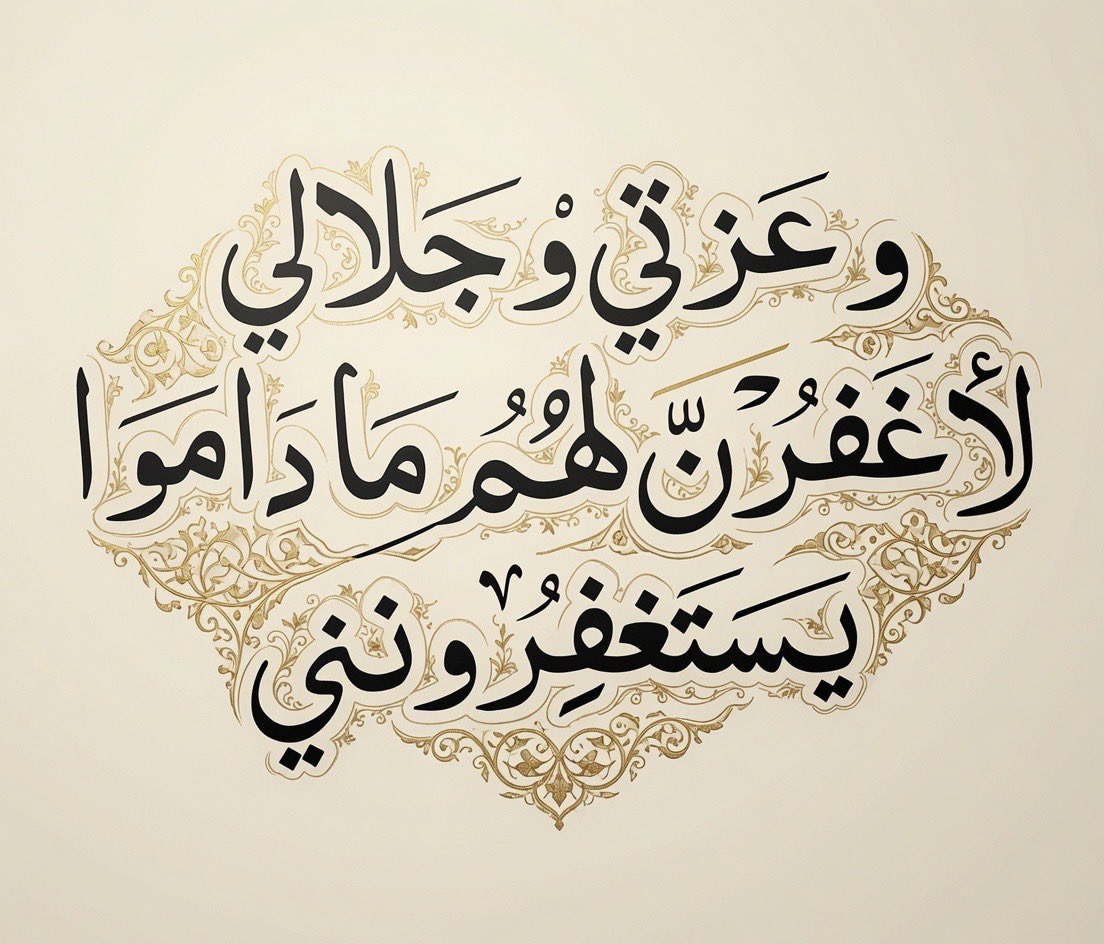 و عَزتي وْ جَلالي
لأغَفرُنَّ لهُمُ مَا دَامَوا
يَستَغفِرُونني